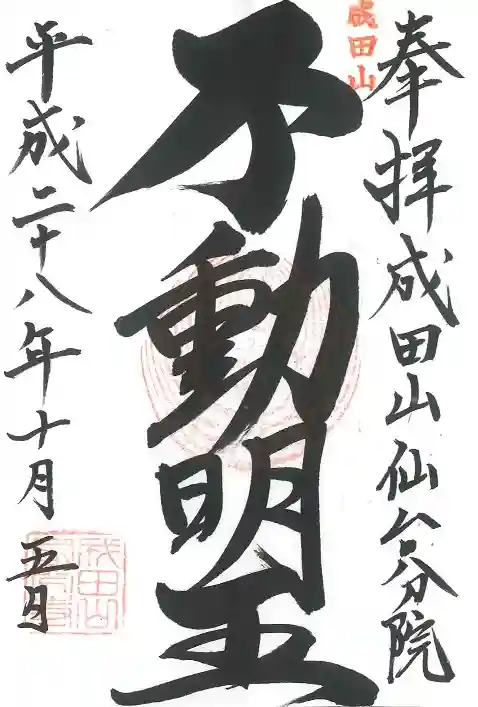 成田山
奉拝 成田山仙台分院
不動明王
平成二十八年十月五日
成田山